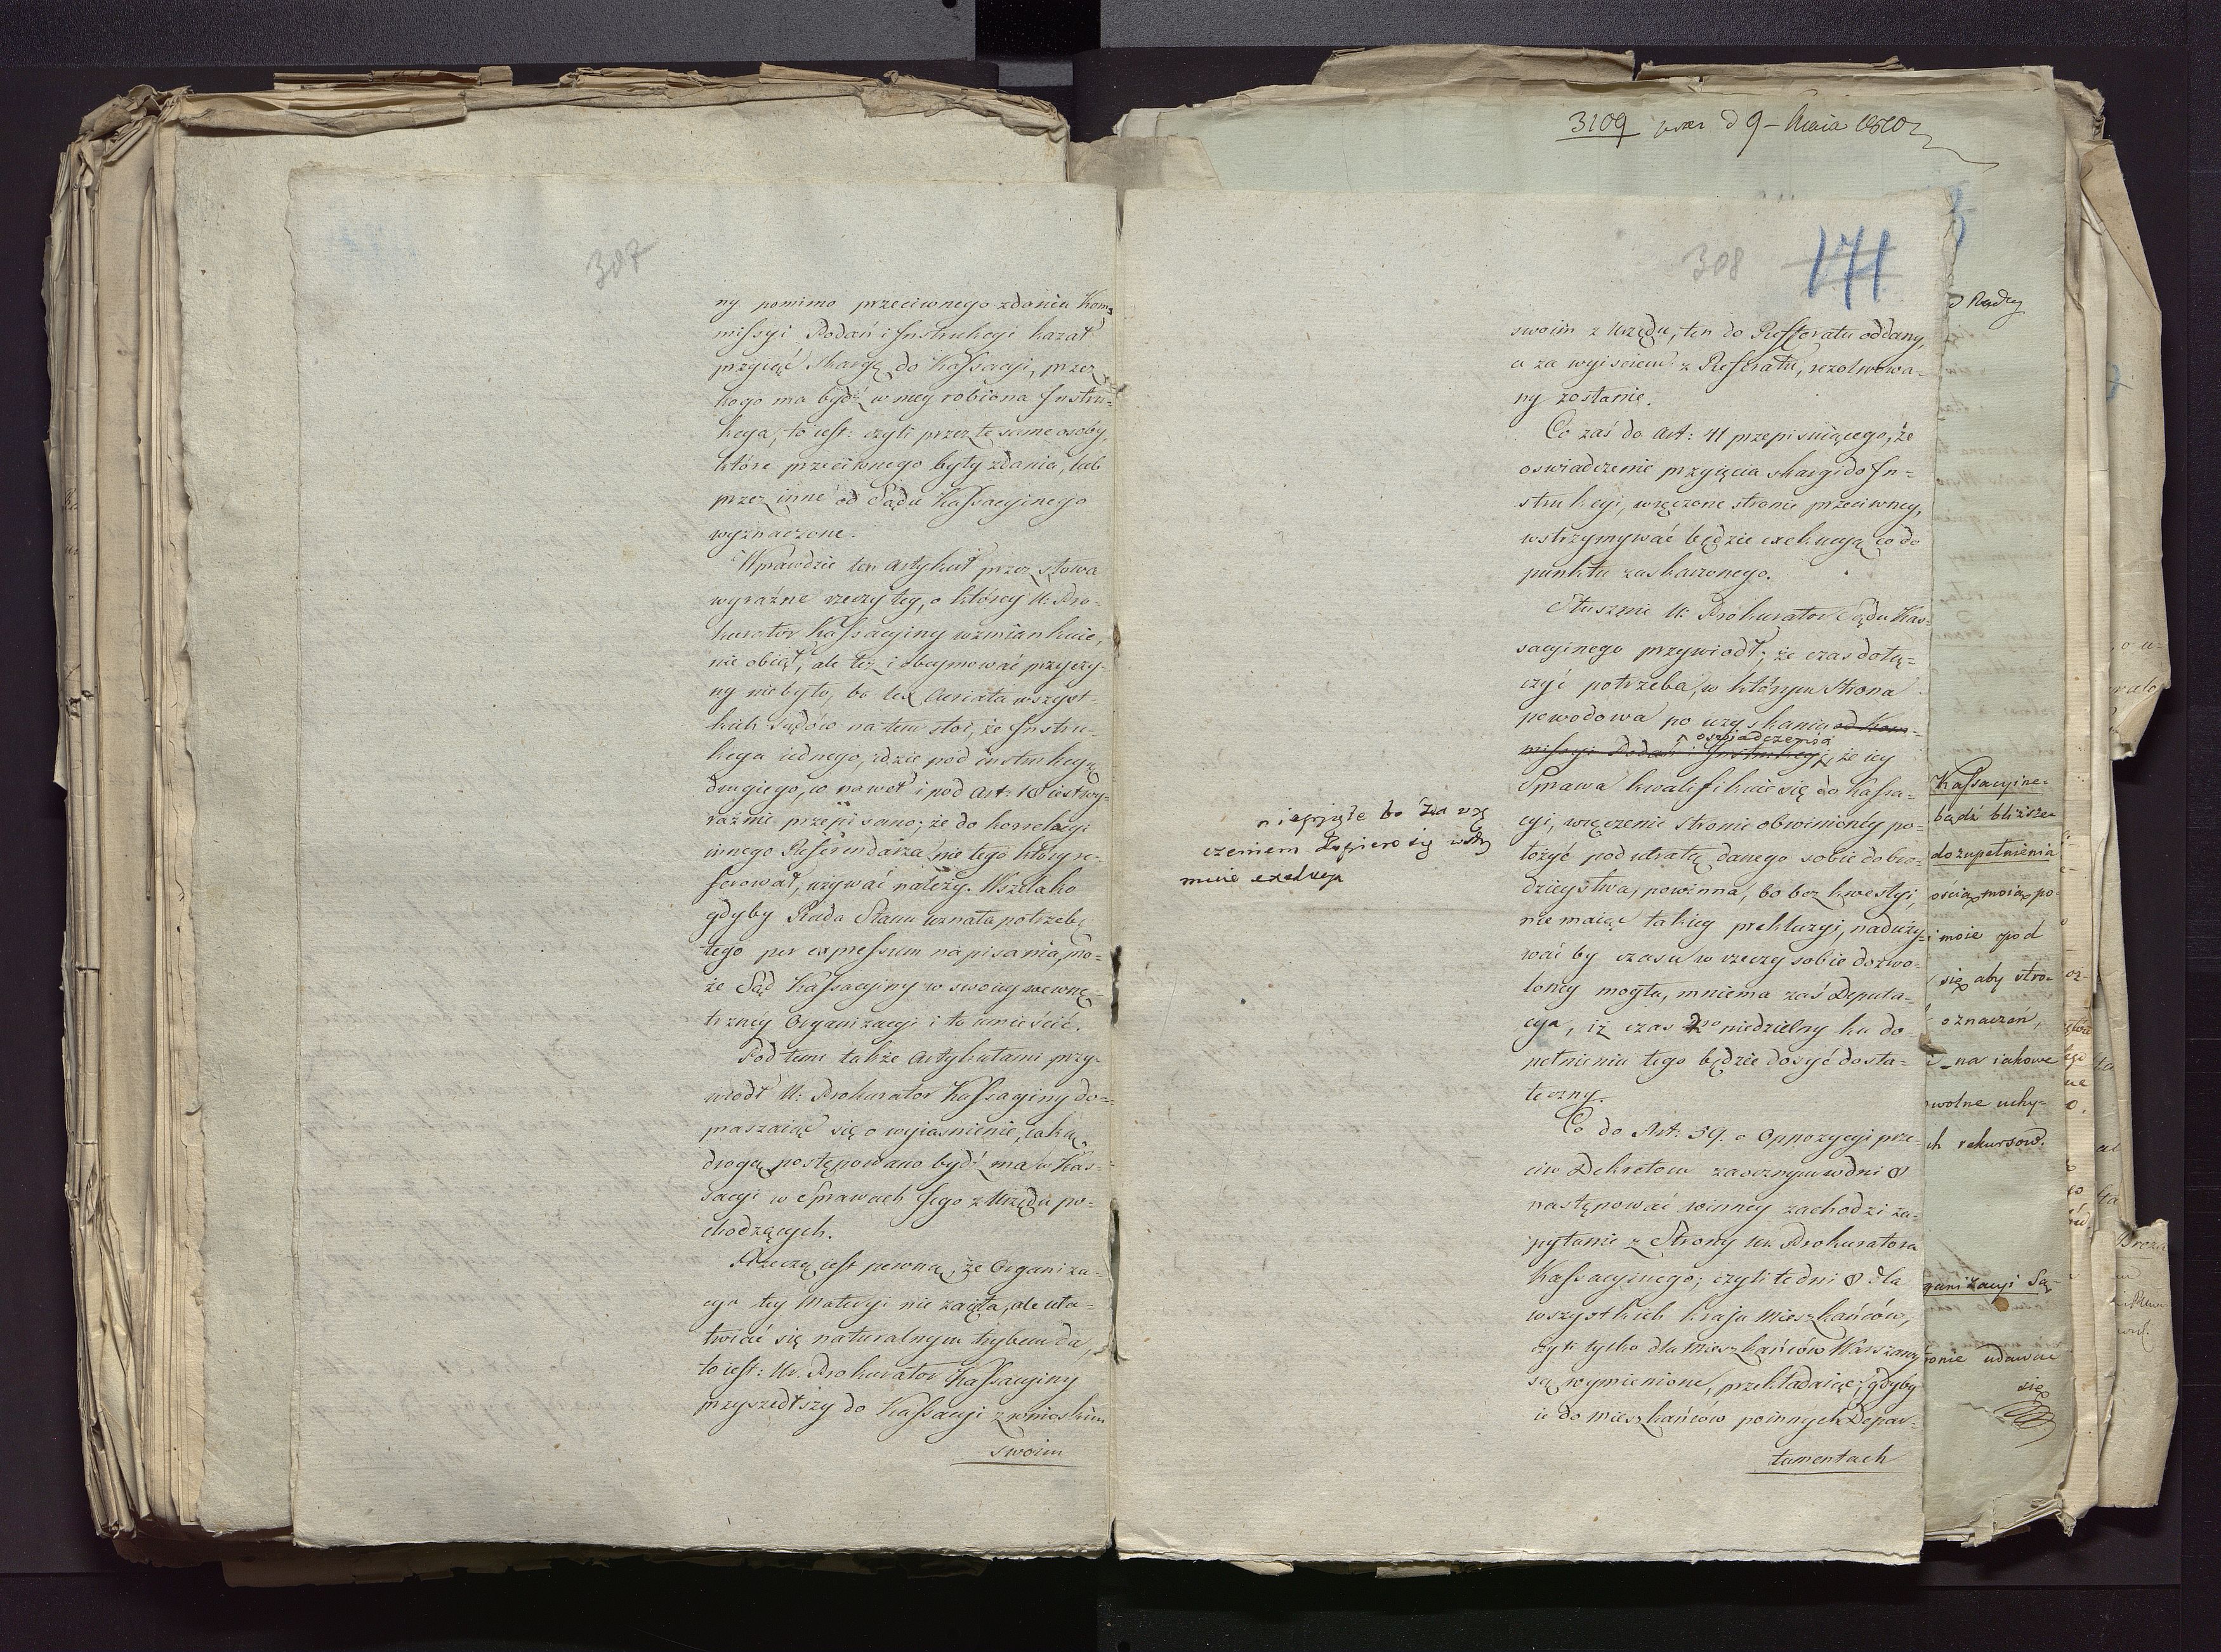 307
ny pomimo przeciwnego zdania Kom=
missyi Podań i Instrukcyi kazał
przyiąć skargę do Kassacyi, przez
kogo ma bydź w niey robiona Instru=
kcya, to iest: czyli przez te same osoby,
które przeciwnego były zdania, lub
przez inne od Sądu Kassacyinego
wyznaczone.
Wprawdzie ten Artykuł przez słowa
wyraźne rzeczy tey, o którey Ur: Pro=
kurator Kassacyiny wzmiankuie,
nie obiął, ale też i obeymować przyczy=
ny niebyło, bo lex Curiata wszyst=
kich sądów na tem stoi, że Instru=
kcya iednego, idzie pod instrukcyą
drugiego, co nawet i pod Art: 18 iest wy=
raźnie przepisano; że do korrekcyi
innego Referendarza nie tego który re=
ferował, używać należy. Wszelako
gdyby Rada Stanu uznała potrzebę
tego per expressum napisania, mo=
że Sąd Kassacyiny w swoiey wewnę=
trzney Organizacyi i to umieścić.
Pod temi także Artykułami przy=
wiódł Ur: Prokurator Kassacyiny do=
praszaiąc się o wyiaśnienie, iaką
drogą postępowano bydź ma w Kas=
sacyi w Sprawach Jego z Urzędu po=
chodzących.
Rzeczą iest pewną, że Organiza=
cya tey Materyi nie zaięła, ale uła=
twiać się naturalnym trybem da,
to iest: Ur. Prokurator Kassacyiny
przyszedłszy do Kassacyi z wnioskiem
swoim
3109 d 9 Maia 1810
308 171
swoim z Urzędu, ten do Refferatu oddany,
a za wyiściem z Referatu, rezolwowa=
ny zostanie.
Co zaś do Art: 41 przepisuiącego, że
oświadczenie przyięcia skargi do In=
strukcyi, wręczone stronie przeciwney,
wstrzymywać będzie exekucyą co do
punktu zaskarżonego.
Słusznie Ur: Prokurator Sądu Kas=
sacyinego przywiódł; że czas dołą=
czyć potrzeba, w którym Strona
powodowa po uzyskaniu od Kom=
missyi Podań i Instrukcyi, że iey
oświadczenia
Sprawa kwalifikuie się do Kassa=
cyi, wręczenie stronie obwinioney po=
łożyć pod utratą danego sobie dobro=
dzieystwa, powinna, bo bez kwestyi,
nie maiąc takiey prekluzyi, naduży=
wać by czasu w rzeczy sobie dozwo=
loney mogła, mniema zaś Deputa=
cya, iż czas 2o niedzielny ku do=
pełnieniu tego będzie dosyć dosta=
teczny.
Co do Art: 39. o Oppozycyi prze=
ciw Dekretom zaocznym w dni 8
następować winney zachodzi za=
pytanie z Strony Ur. Prokuratora
Kassacyinego; czyli te dni 8 dla
wszystkich kraju Mieszkańców,
czyli tylko dla Mieszkańców Warszawy
są wymienione, przekładaiąc; gdyby
ie do Mieszkańców po innych Depar=
tamentach
nieprzyięte bo za wrę
czeniem dopiero się wstrzy
muie exekucya
Kassacyine=
bądź bliższe
do zupełnienia
ością moią po=
i moie pod
się aby stro=
oznaczeń,
na iakowe
wolne uchy=
ch rekursów.
ganizacyi Są=
ronie udawać
się